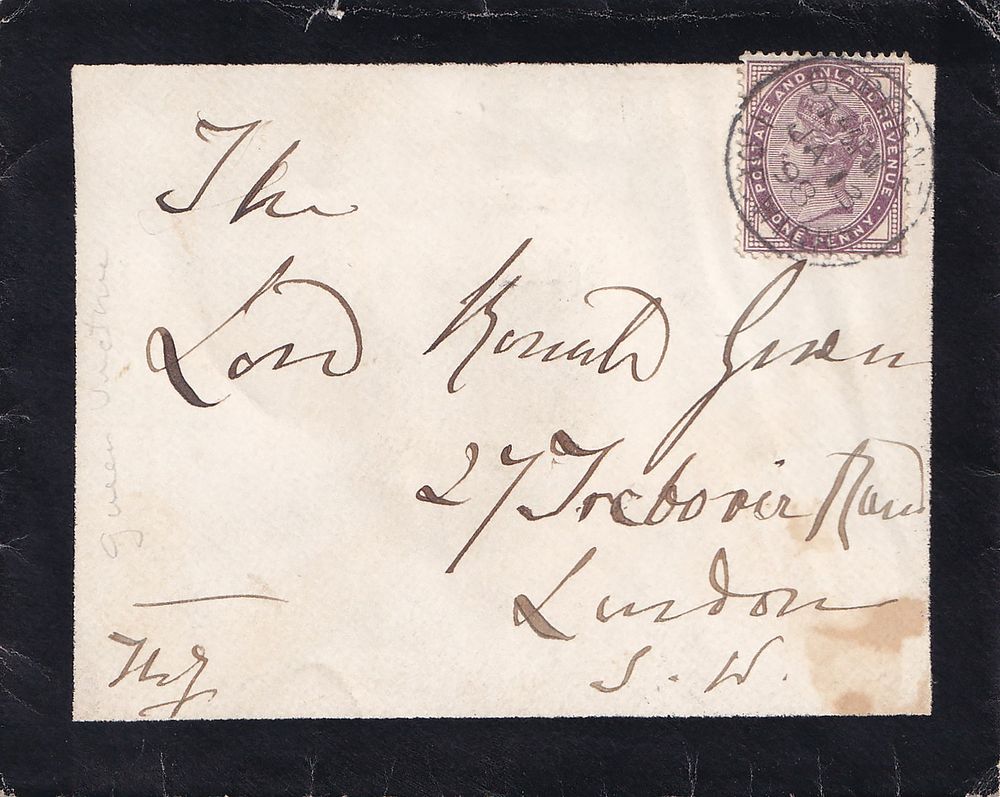 POSTAGE AND INLAND REVENUE
ONE PENNY
JA 1
98
The
Lord Ronald Gower
27 Trebovir Road
London
S. W.
Queen Victoria